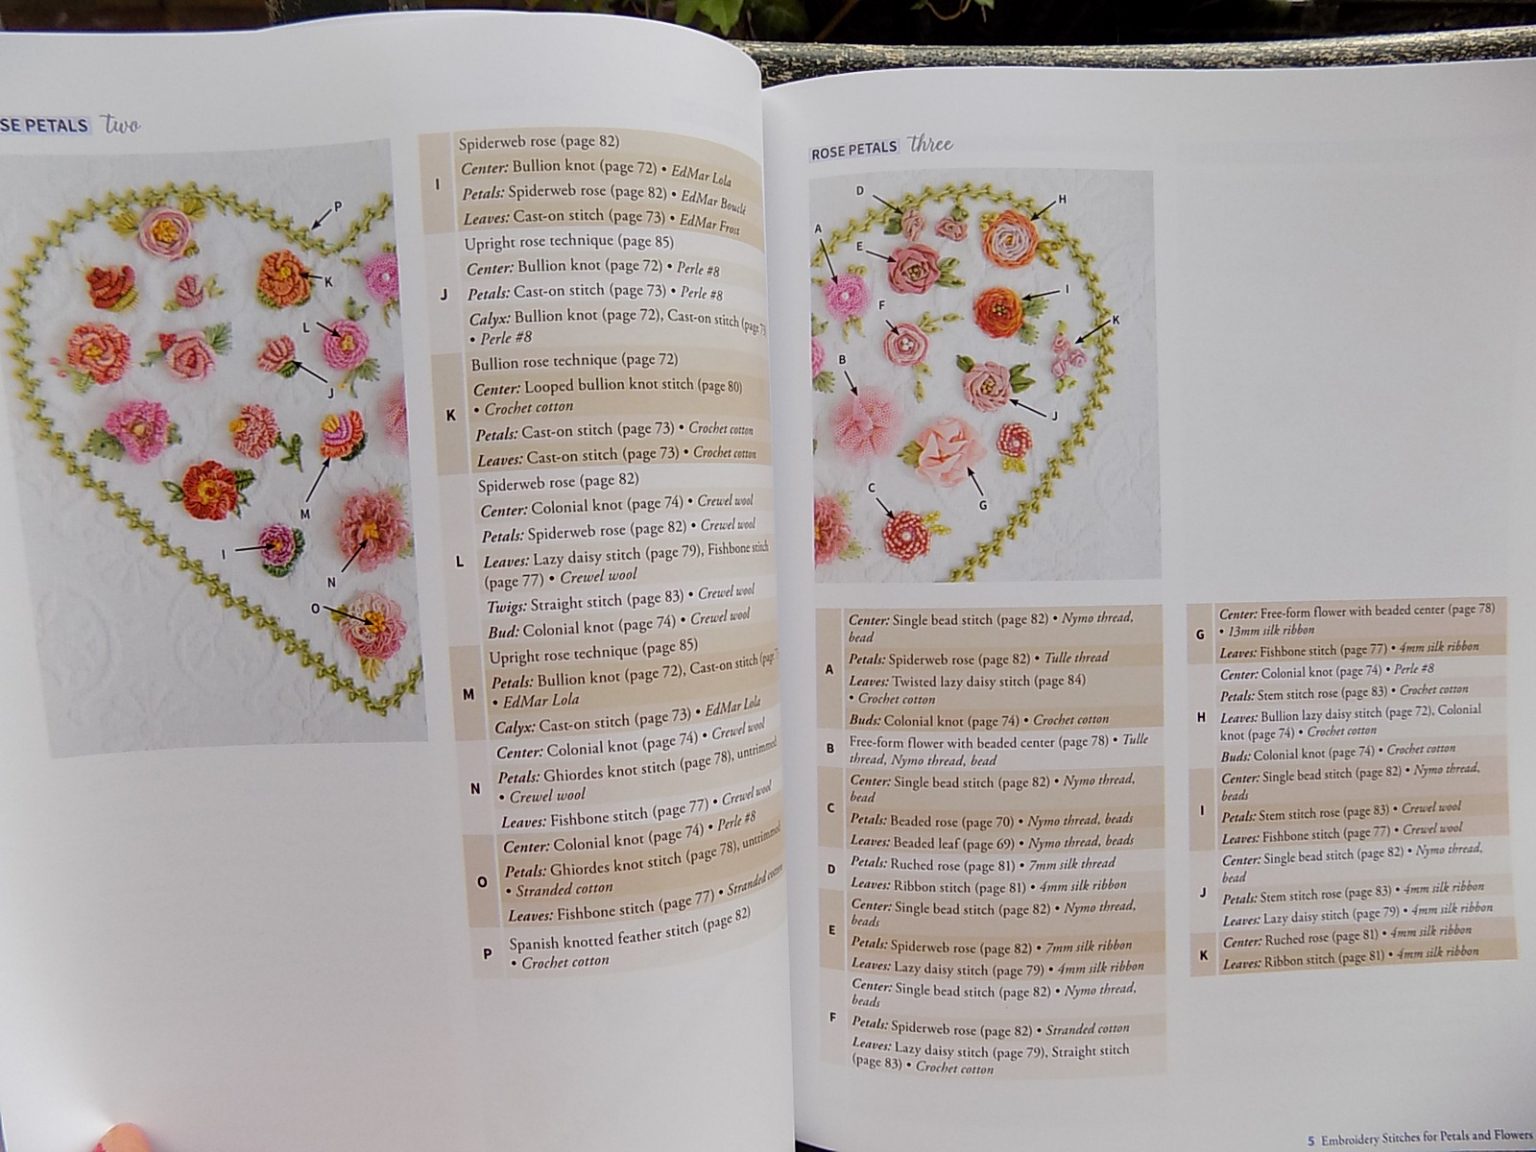 SE PETALS two
P
K
L
J
M
I
N
O
I
Spiderweb rose (page 82)
Center: Bullion knot (page 72) • EdMar Lola
Petals: Spiderweb rose (page 82) • EdMar Bouclé
Leaves: Cast-on stitch (page 73) • EdMar Frost
J
Upright rose technique (page 85)
Center: Bullion knot (page 72) • Perle #8
Petals: Cast-on stitch (page 73) • Perle #8
Calyx: Bullion knot (page 72), Cast-on stitch (page 73)
• Perle #8
K
Bullion rose technique (page 72)
Center: Looped bullion knot stitch (page 80)
• Crochet cotton
Petals: Cast-on stitch (page 73) • Crochet cotton
Leaves: Cast-on stitch (page 73) • Crochet cotton
L
Spiderweb rose (page 82)
Center: Colonial knot (page 74) • Crewel wool
Petals: Spiderweb rose (page 82) • Crewel wool
Leaves: Lazy daisy stitch (page 79), Fishbone stitch
(page 77) • Crewel wool
Twigs: Straight stitch (page 83) • Crewel wool
Bud: Colonial knot (page 74) • Crewel wool
M
Upright rose technique (page 85)
Petals: Bullion knot (page 72), Cast-on stitch (page
• EdMar Lola
Calyx: Cast-on stitch (page 73) • EdMar Lola
N
Center: Colonial knot (page 74) • Crewel wool
Petals: Ghiordes knot stitch (page 78), untrimmed
• Crewel wool
Leaves: Fishbone stitch (page 77) • Crewel wool
O
Center: Colonial knot (page 74) • Perle #8
Petals: Ghiordes knot stitch (page 78), untrimmed
• Stranded cotton
Leaves: Fishbone stitch (page 77) • Stranded cotton
P
Spanish knotted feather stitch (page 82)
• Crochet cotton
ROSE PETALS three
D
H
A
E
I
F
K
B
J
C
G
A
Center: Single bead stitch (page 82) • Nymo thread,
bead
Petals: Spiderweb rose (page 82) • Tulle thread
Leaves: Twisted lazy daisy stitch (page 84)
• Crochet cotton
Buds: Colonial knot (page 74) • Crochet cotton
B
Free-form flower with beaded center (page 78) • Tulle
thread, Nymo thread, bead
C
Center: Single bead stitch (page 82) • Nymo thread,
bead
Petals: Beaded rose (page 70) • Nymo thread, beads
Leaves: Beaded leaf (page 69) • Nymo thread, beads
D
Petals: Ruched rose (page 81) • 7mm silk thread
Leaves: Ribbon stitch (page 81) • 4mm silk ribbon
E
Center: Single bead stitch (page 82) • Nymo thread,
beads
Petals: Spiderweb rose (page 82) • 7mm silk ribbon
Leaves: Lazy daisy stitch (page 79) • 4mm silk ribbon
F
Center: Single bead stitch (page 82) • Nymo thread,
beads
Petals: Spiderweb rose (page 82) • Stranded cotton
Leaves: Lazy daisy stitch (page 79), Straight stitch
(page 83) • Crochet cotton
G
Center: Free-form flower with beaded center (page 78)
• 13mm silk ribbon
Leaves: Fishbone stitch (page 77) • 4mm silk ribbon
H
Center: Colonial knot (page 74) • Perle #8
Petals: Stem stitch rose (page 83) • Crochet cotton
Leaves: Bullion lazy daisy stitch (page 72), Colonial
knot (page 74) • Crochet cotton
Buds: Colonial knot (page 74) • Crochet cotton
I
Center: Single bead stitch (page 82) • Nymo thread,
beads
Petals: Stem stitch rose (page 83) • Crewel wool
Leaves: Fishbone stitch (page 77) • Crewel wool
J
Center: Single bead stitch (page 82) • Nymo thread,
bead
Petals: Stem stitch rose (page 83) • 4mm silk ribbon
Leaves: Lazy daisy stitch (page 79) • 4mm silk ribbon
K
Center: Ruched rose (page 81) • 4mm silk ribbon
Leaves: Ribbon stitch (page 81) • 4mm silk ribbon
5 Embroidery Stitches for Petals and Flowers